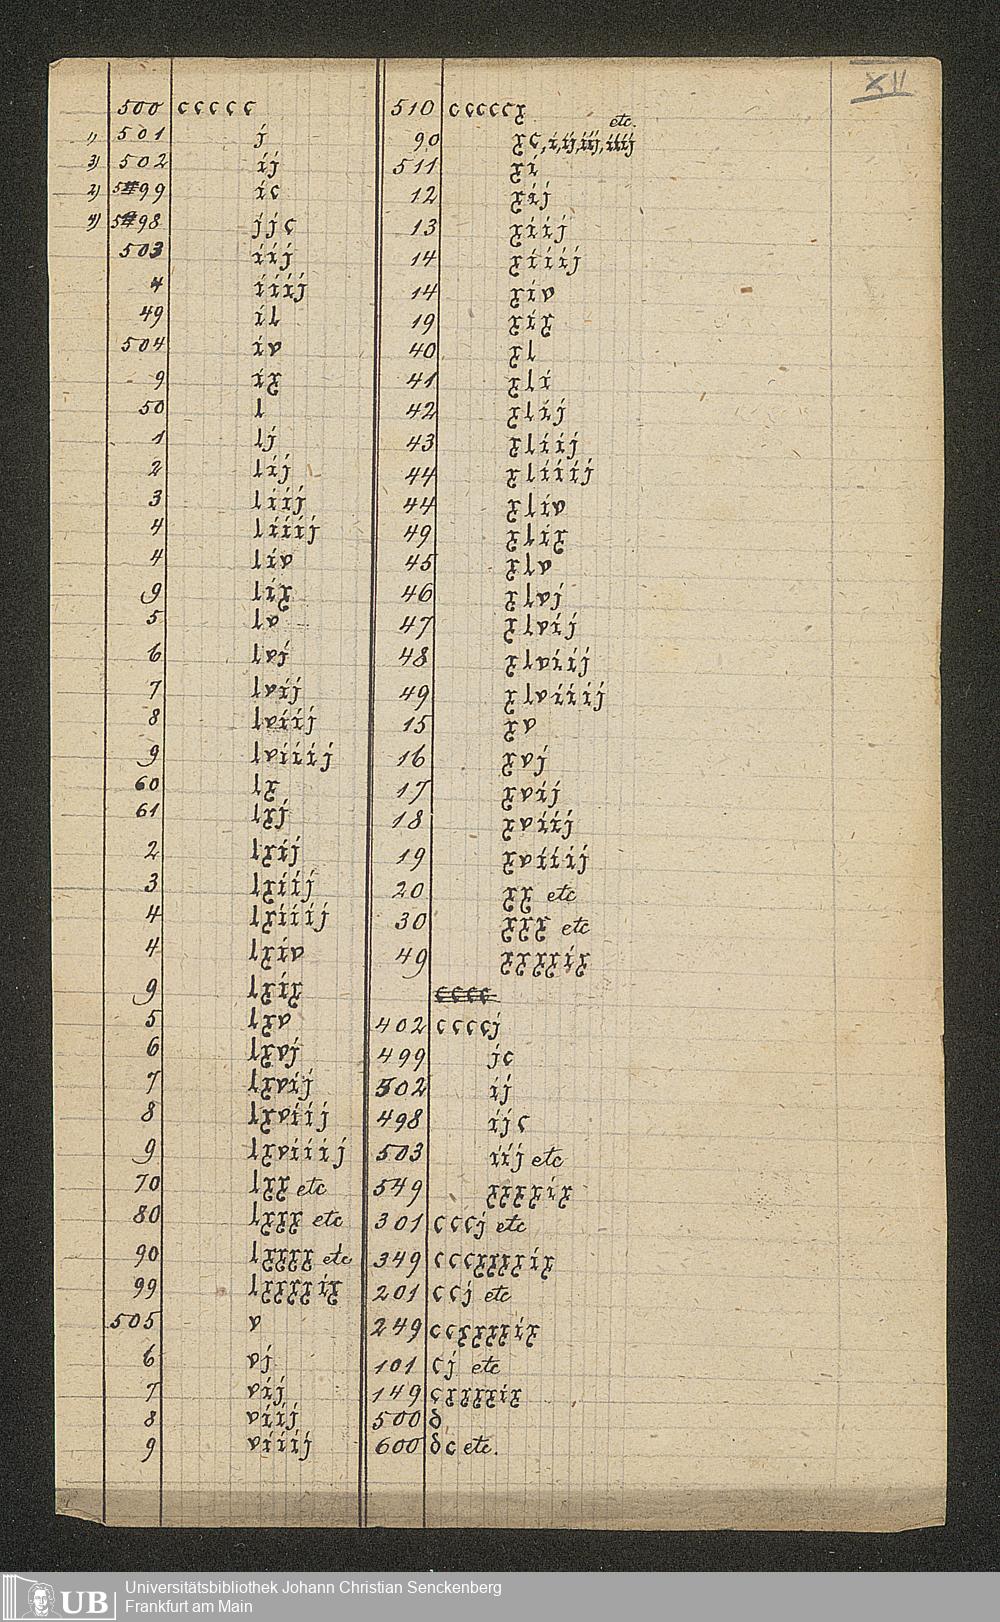 XII
500 ccccc
1) 501 j
3) 502 ij
2) 99 ic
4) 98 jjc
503 iij
4 iiij
49 il
504 iv
9 ix
50 l
1 lj
2 lij
3 liij
4 liiij
4 liv
9 lix
5 lv
6 lvj
7 lvij
8 lviij
9 lviiij
60 lx
61 lxj
2 lxij
3 lxiij
4 lxiiij
4 lxiv
9 lxix
5 lxv
6 lxvj
7 lxvij
8 lxviij
9 lxviiij
70 lxx etc
80 lxxx etc
90 lxxxx etc
99 lxxxxix
505 v
6 vj
7 vij
8 viij
9 viiij
510 cccccx
etc.
90 xc, i, ij, iij, iiij
511 xi
12 xij
13 xiij
14 xiiij
14 xiv
19 xix
40 xl
41 xli
42 xlij
43 xliij
44 xliiij
44 xliv
49 xlix
45 xlv
46 xlvj
47 xlvij
48 xlviij
49 xlviiij
15 xv
16 xvj
17 xvij
18 xviij
19 xviiij
20 xx etc
30 xxx etc
49 xxxxix
cccc
402 ccccj
499 jc
502 ij
498 ijc
503 iij etc
549 xxxxix
301 cccj etc
349 cccxxxxix
201 ccj etc
249 ccxxxxix
101 cj etc
149 cxxxxix
500 d
600 dc etc.
UB
Universitätsbibliothek Johann Christian Senckenberg
Frankfurt am Main